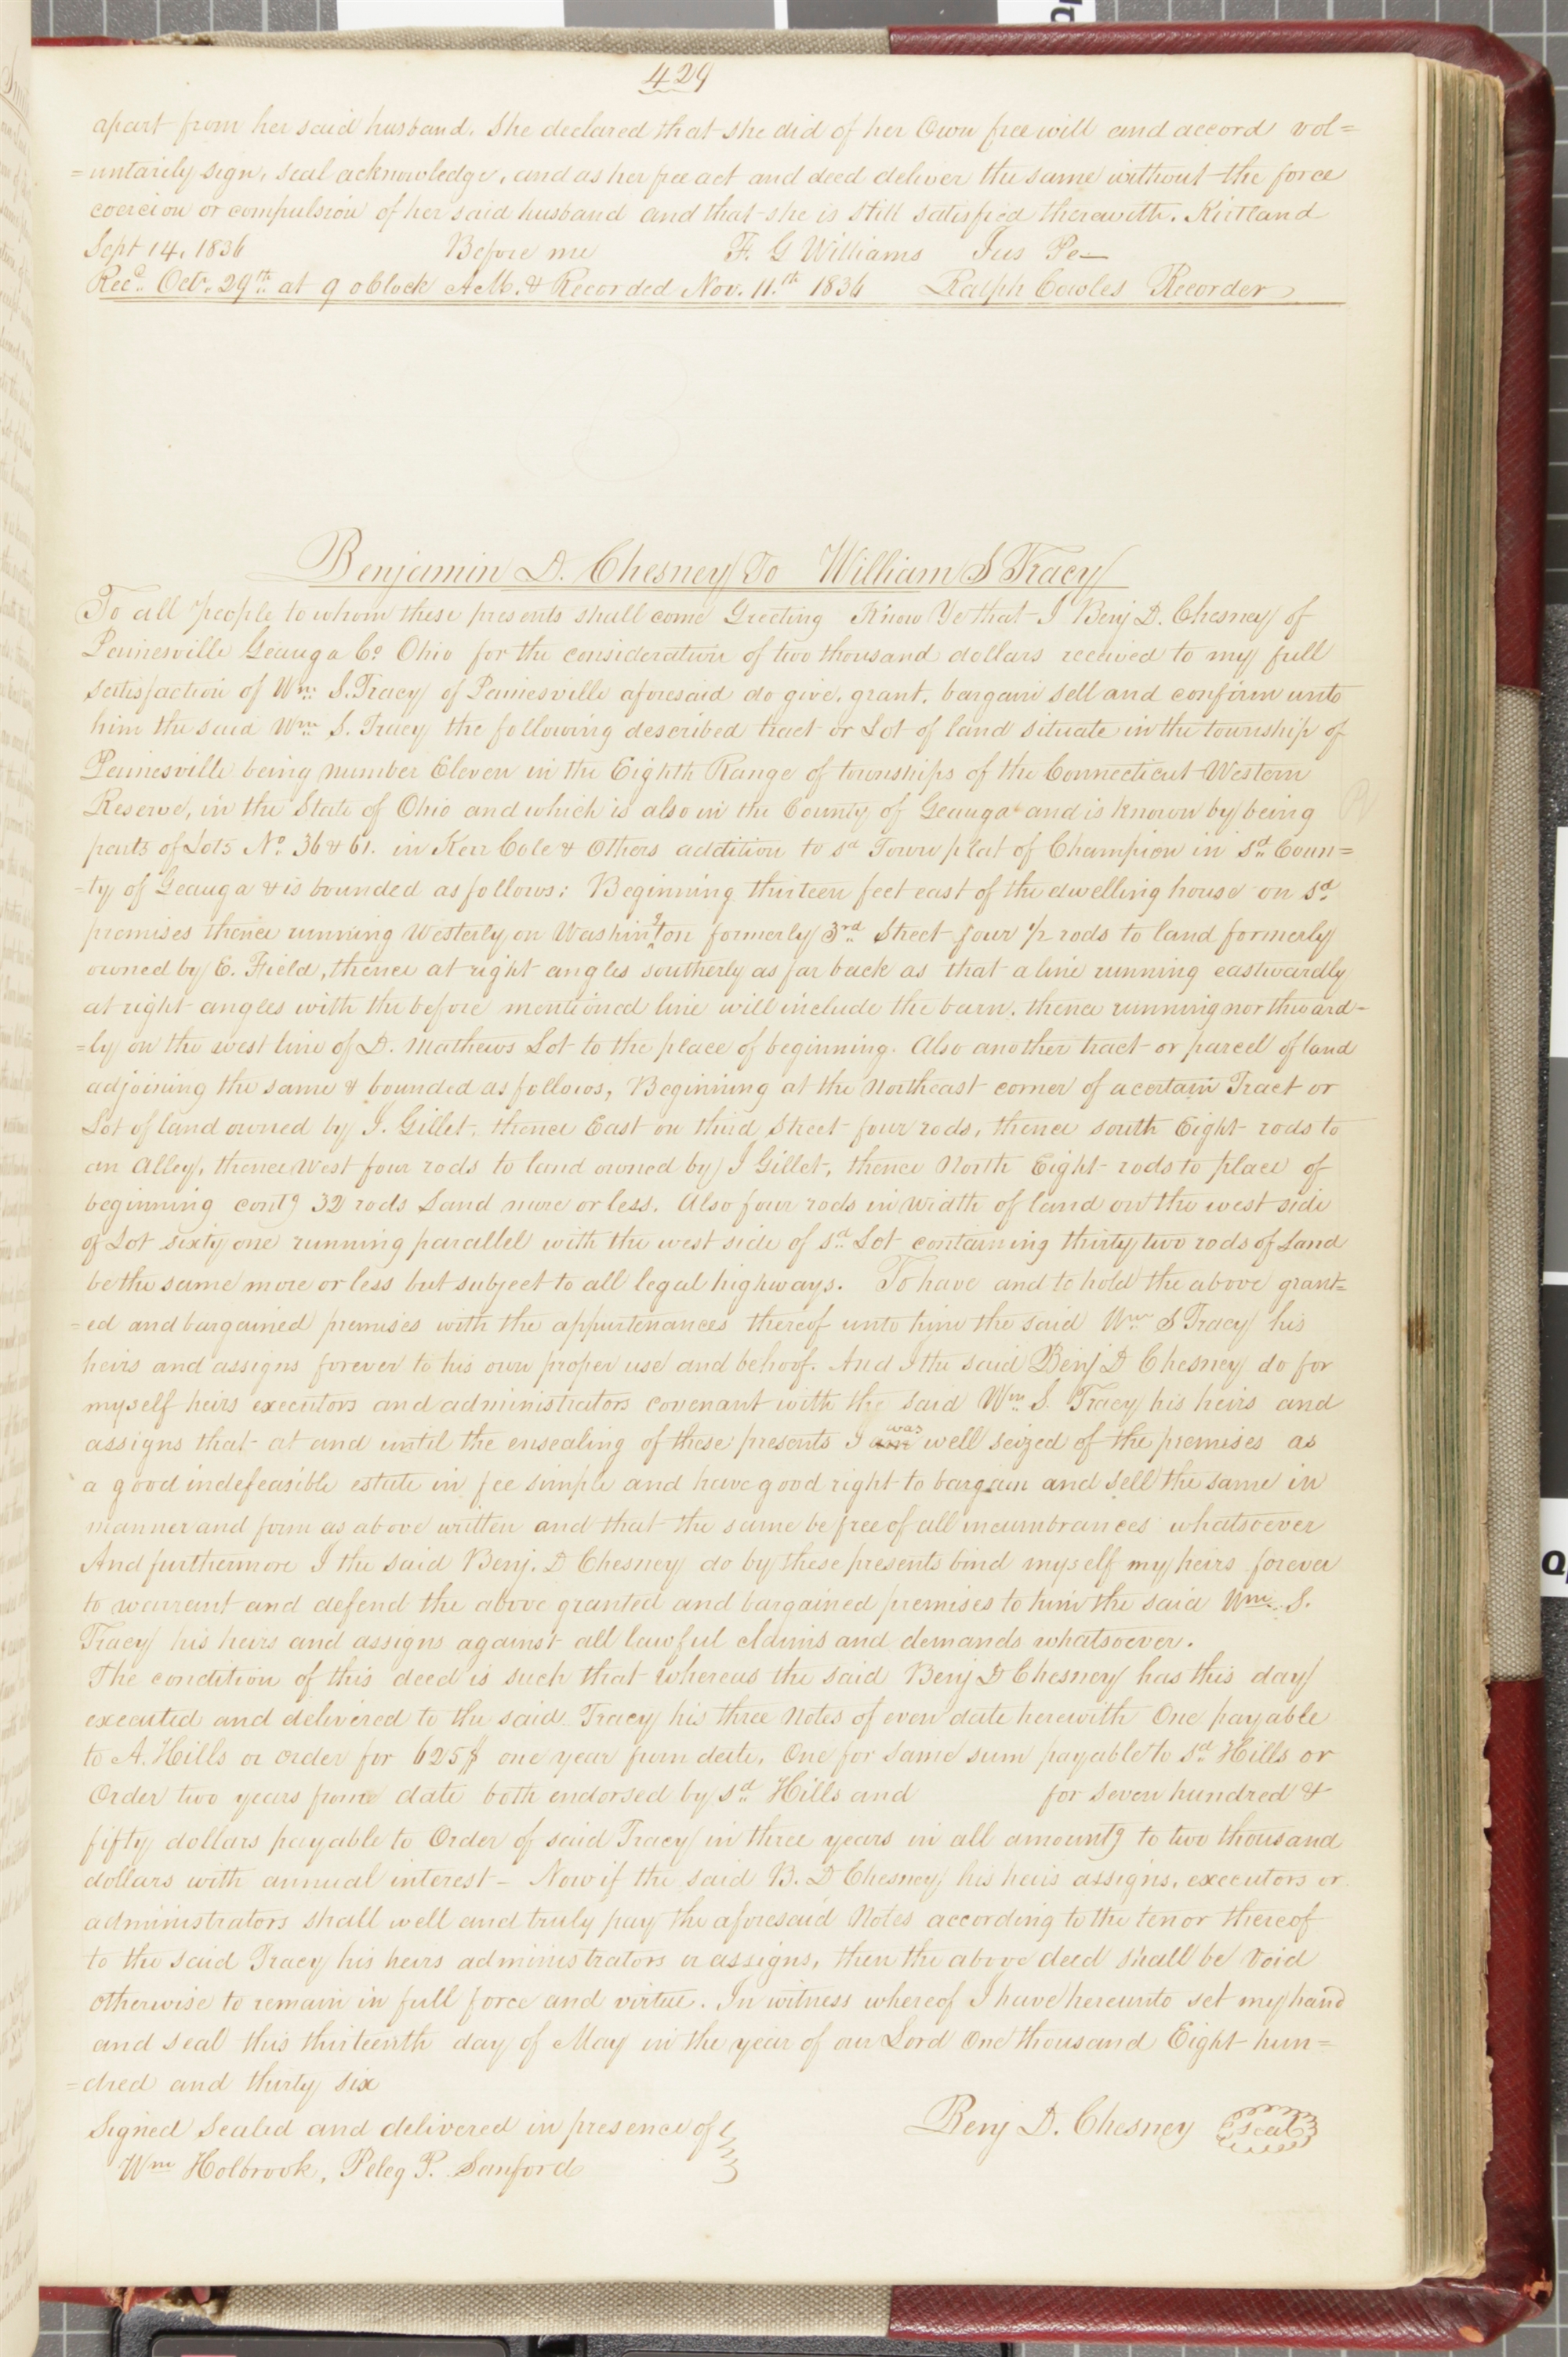 429
apart from her said husband. She declared that she did of her Own free will and accord vol=
=untarily sign, seal acknowledge, and as her free act and deed deliver the same without the force
coercion or compulsion of her said husband and that she is still satisfied therewith. Kirtland
Sept 14, 1836 Before me F. G Williams Jus Pe—
Recd. Octr. 29th at 9 oClock A.M. & Recorded Nov. 11th 1836 Ralph Cowles Recorder
Benjamin D. Chesney To William S Tracy
To all people to whom these presents shall come Greeting Know Ye that I Benj D. Chesney of
Painesville Geauga Co Ohio for the consideration of two thousand dollars received to my full
satisfaction of Wm. S. Tracy of Painesville aforesaid do give, grant, bargain sell and confirm unto
him the said Wm. S. Tracy the following described tract or Lot of land situate in the township of
Painesville being number Eleven in the Eighth Range of townships of the Connecticut Western
Reserve, in the State of Ohio and which is also in the County of Geauga and is known by being
parts of Lots No. 36 & 61. in Kerr Cole & Others addition to sd Town plat of Champion in sd. Coun=
=ty of Geauga & is bounded as follows: Beginning thirteen feet east of the dwelling house on sd.
premises thence running Westerly on Washington formerly 3rd. Street four 1/2 rods to land formerly
owned by E. Field, thence at right angles southerly as far back as that a line running eastwardly
at right angles with the before mentioned line will include the barn, thence running northward-
=ly on the west line of D. Mathews Lot to the place of beginning. Also another tract or parcel of land
adjoining the same & bounded as follows, Beginning at the Northeast corner of a certain Tract or
Lot of land owned by J. Gillet, thence East on third Street four rods, thence south Eight rods to
an Alley, thence West four rods to land owned by J Gillet, thence North Eight rods to place of
beginning contg 32 rods Land more or less. Also four rods in width of land on the west side
of Lot sixty one running parallel with the west side of sd. Lot containing thirty two rods of Land
be the same more or less but subject to all legal highways. To have and to hold the above grant=
=ed and bargained premises with the appurtenances thereof unto him the said Wm S Tracy his
heirs and assigns forever to his own proper use and behoof. And I the said Benj D Chesney do for
myself heirs executors and administrators covenant with the said Wm. S. Tracy his heirs and
assigns that at and until the ensealing of these presents I am was well seized of the premises as
a good indefeasible estate in fee simple and have good right to bargain and sell the same in
manner and form as above written and that the same be free of all incumbrances whatsoever
And furthermore I the said Benj. D Chesney do by these presents bind myself my heirs forever
to warrant and defend the above granted and bargained premises to him the said Wm. S.
Tracy his heirs and assigns against all lawful claims and demands whatsoever.
The condition of this deed is such that whereas the said Benj D Chesney has this day
executed and delivered to the said Tracy his three Notes of even date herewith One payable
to A. Hills or order for 625$ one year from date, One for same sum payable to sd. Hills or
Order two years from date both endorsed by sd. Hills and for seven hundred &
fifty dollars payable to Order of said Tracy in three years in all amountg to two thousand
dollars with annual interest – Now if the said B. D Chesney his heirs assigns, executors or
administrators shall well and truly pay the aforesaid Notes according to the tenor thereof
to the said Tracy his heirs administrators or assigns, then the above deed shall be Void
otherwise to remain in full force and virtue. In witness whereof I have hereunto set my hand
and seal this thirteenth day of May in the year of our Lord One thousand Eight hun=
=dred and thirty six
Signed Sealed and delivered in presence of Benj D. Chesney seal
Wm Holbrook, Peleg P. Sanford